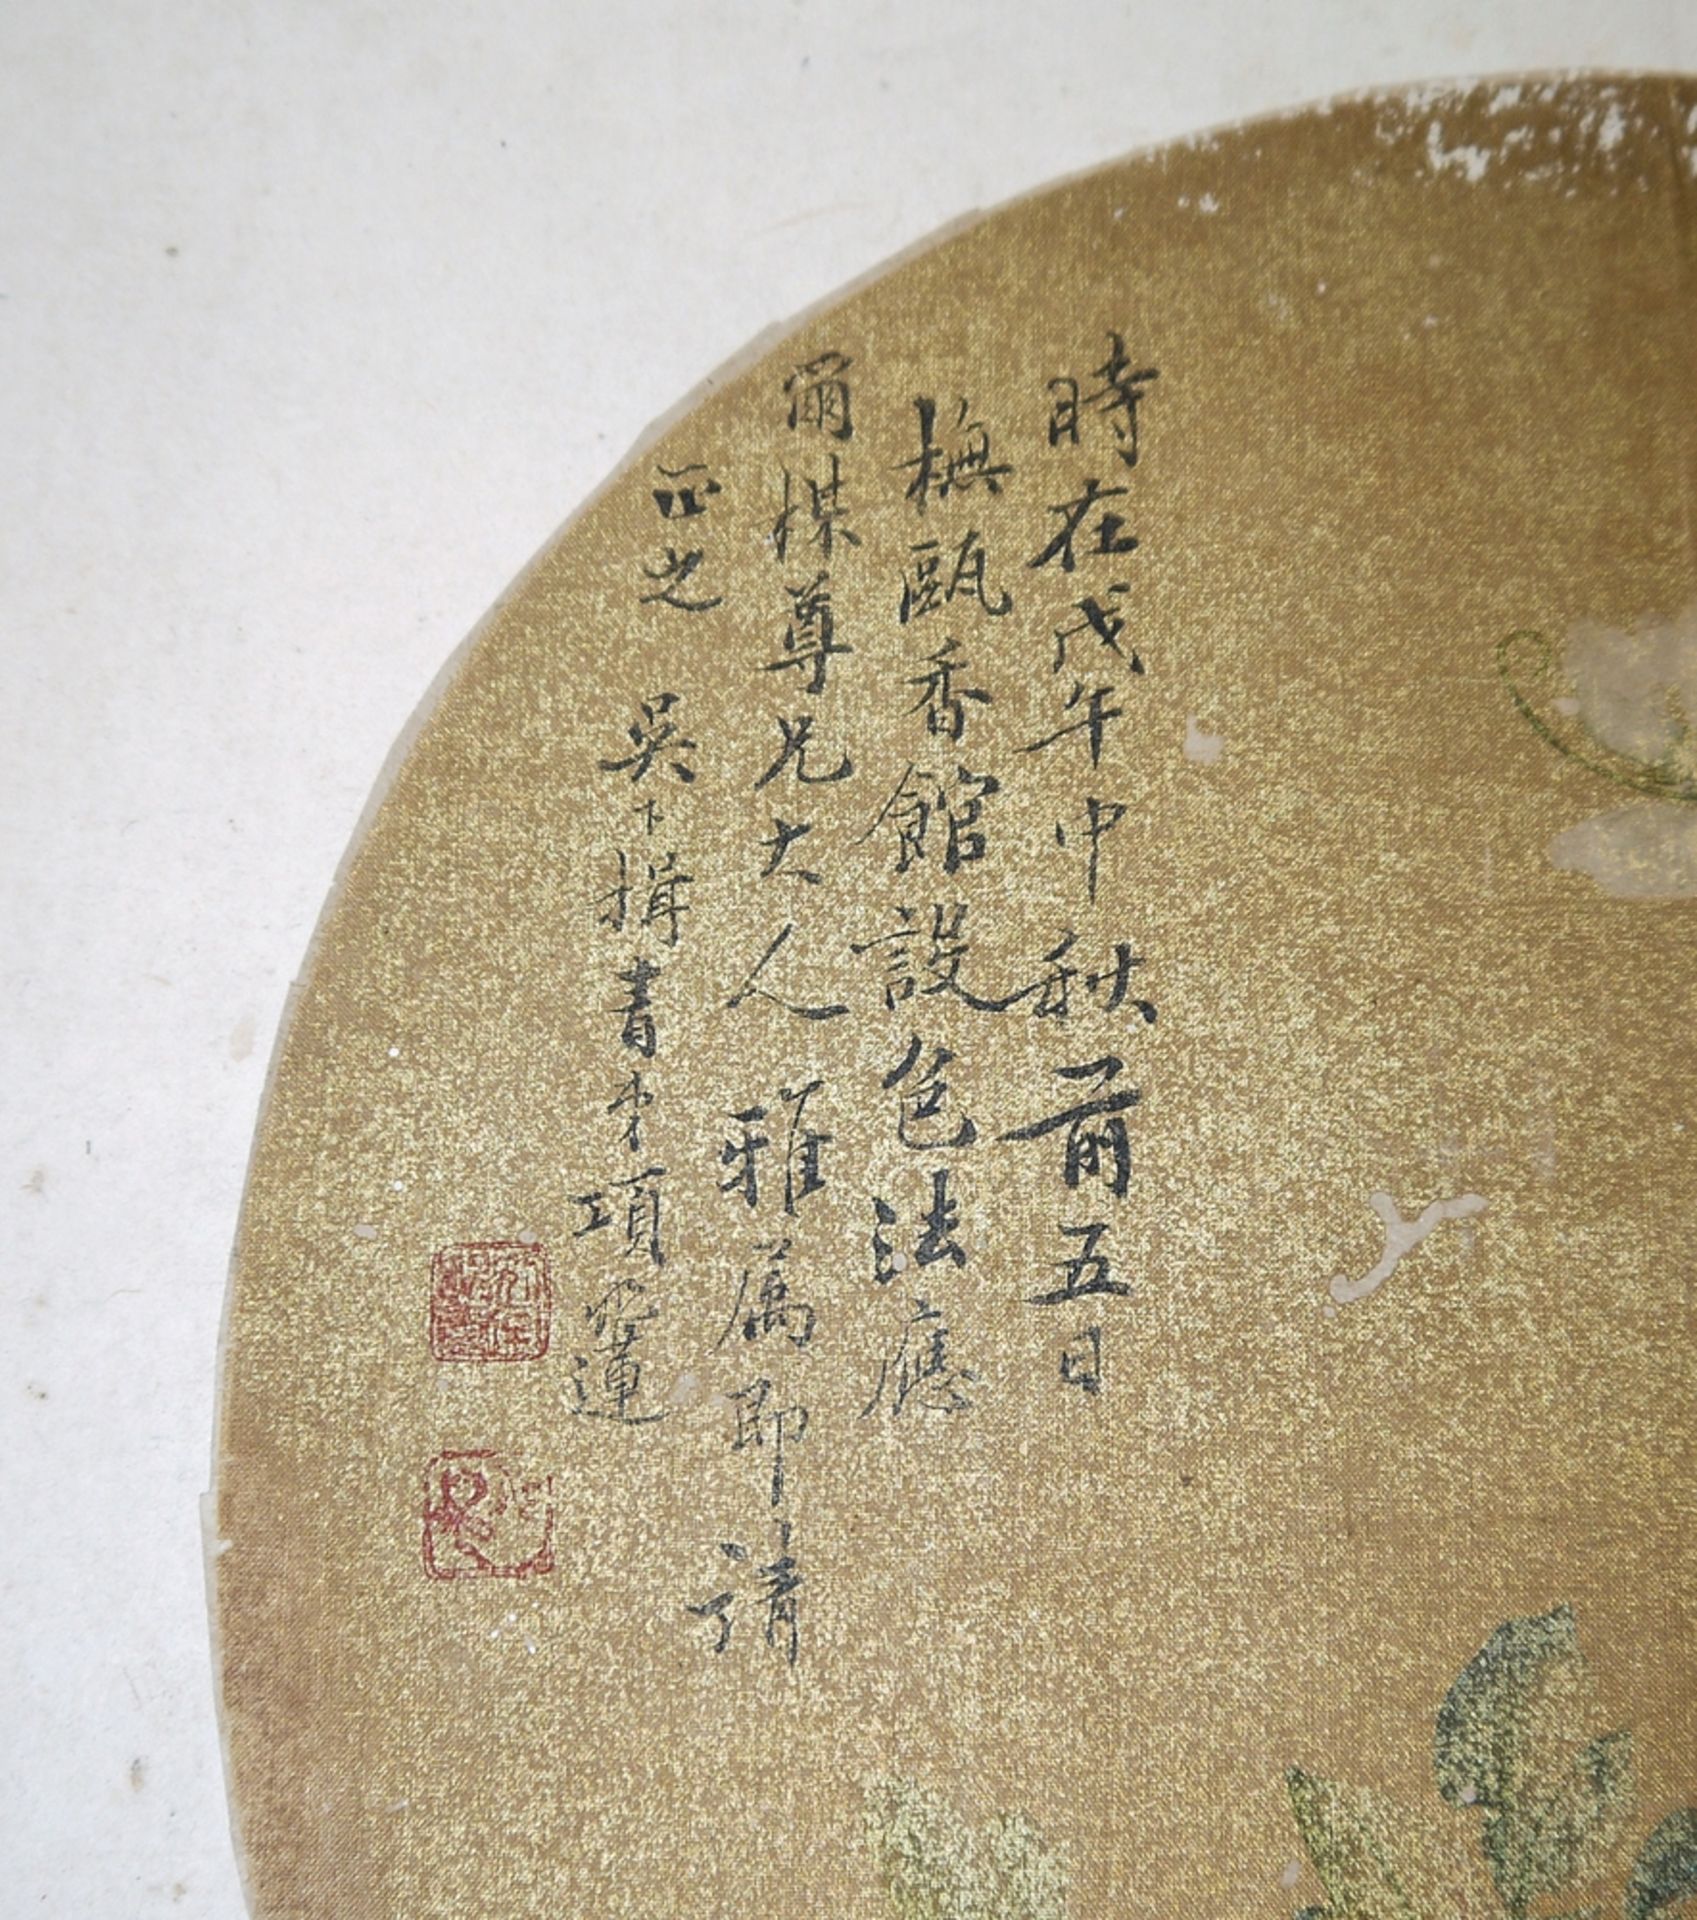 時在戊午中秋前五日
橅甌香館設色法應
爾楳尊兄大人雅屬即請
正之 吳下揖青弟項